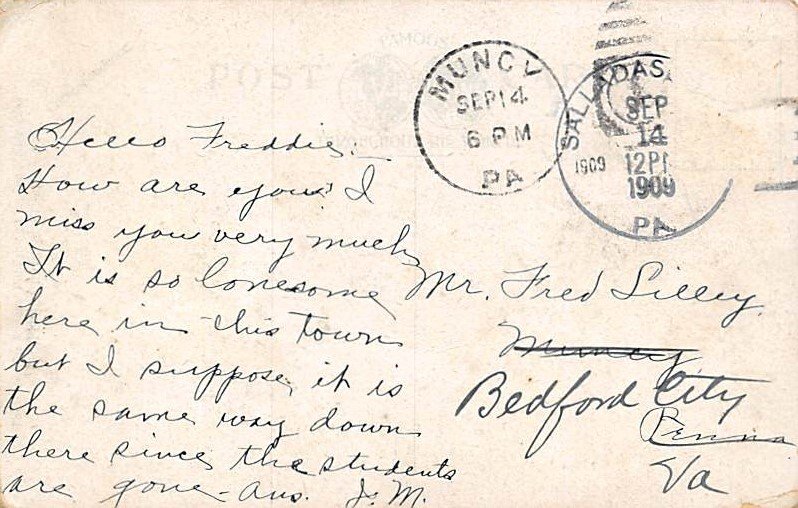 POST
MUNCY
SEP 14
6 PM
PA
SALLADAS
SEP
14
1909
12PM
1909
PA
Hello Freddie. —
How are you? I
miss you very much
It is so lonesome
here in this town
but I suppose it is
the same way down
there since the students
are gone - Ans. J. M.
Mr. Fred Lilley.
Muncy
Bedford City
Penna
Va